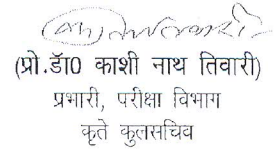 (प्रो.डॅा0 काशी नाथ तिवारी)
प्रभारी, परीक्षा विभाग
कृते कुलसचिव